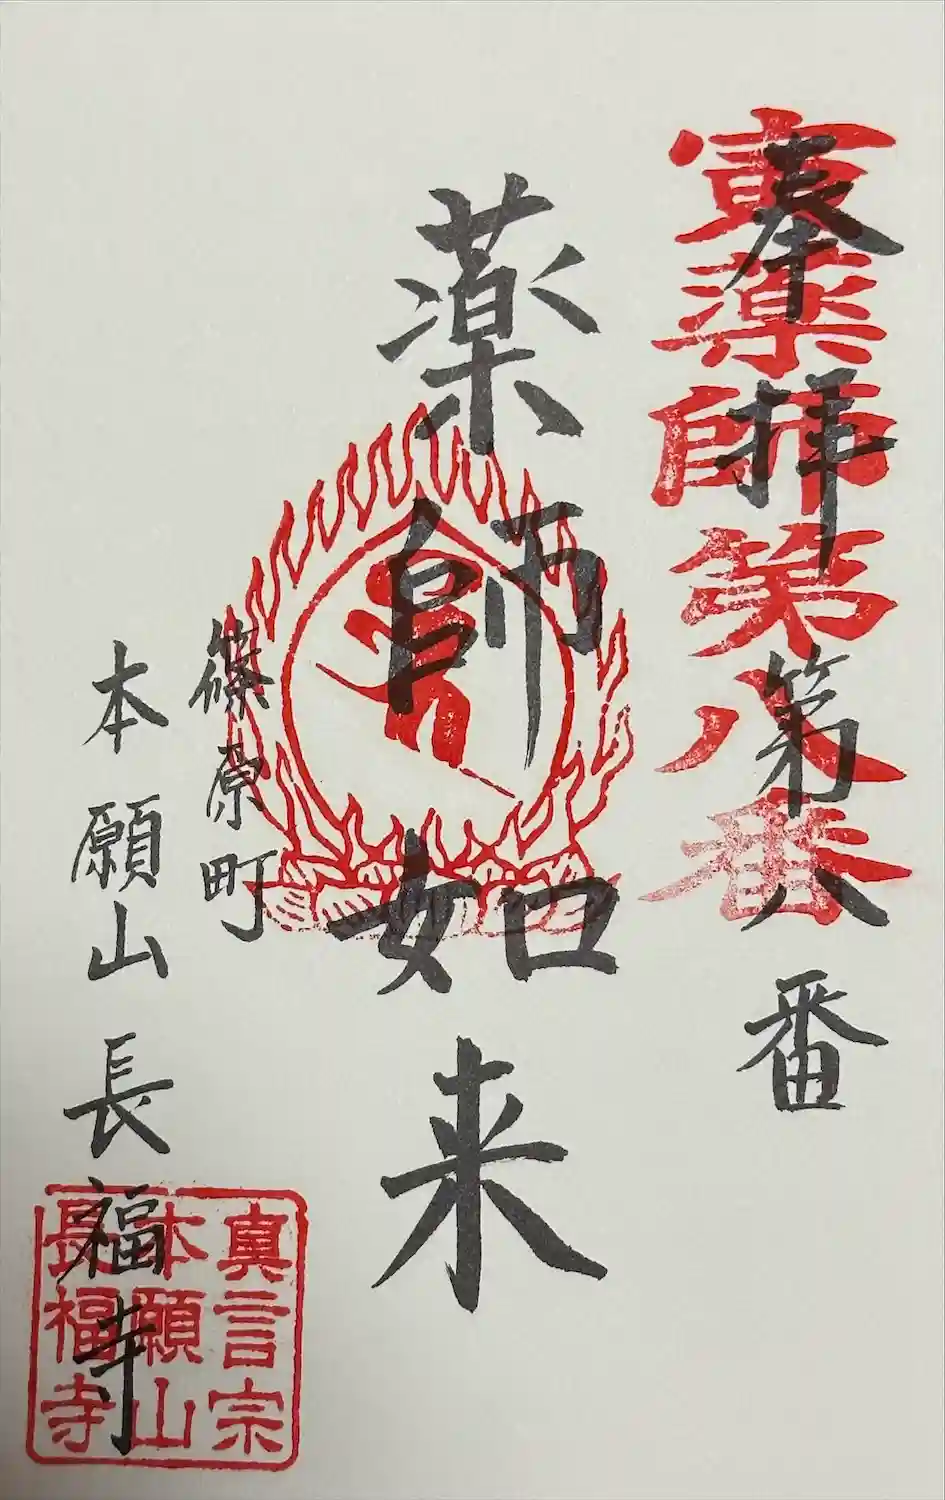 寅薬師第八番
奉拝 第八番
薬師如来
篠原町
本願山長福寺
真言宗
本願山
長福寺